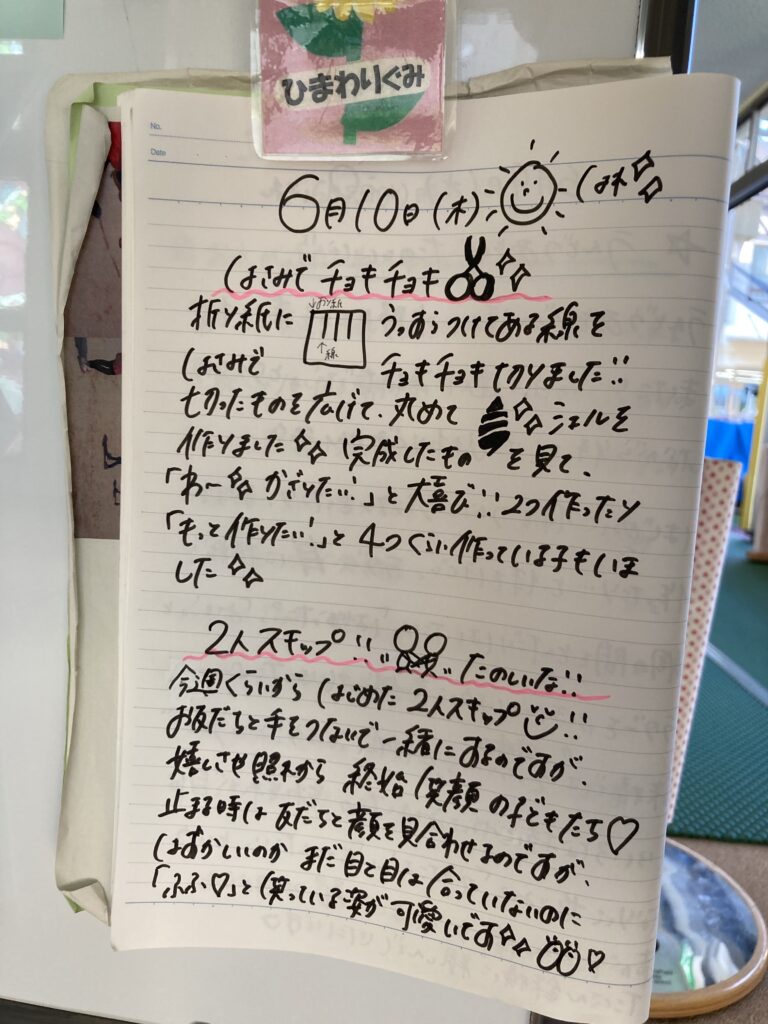 ひまわりぐみ
No.
Date
6月10日(木) はれ
はさみで チョキチョキ
折り紙に ↓おり紙 ↑線 うっすらつけてある線を
はさみで チョキチョキ切りました!!
切ったものを広げて、丸めて シェルを
作りました 完成したもの を見て、
「わー かざりたい!」と大喜び!! 2つ作ったり
「もっと作りたい!」と 4つくらい作っている子もいま
した
2人スキップ!! たのしいな!!
今週くらいから はじめた 2人スキップ!!
お友だちと手をつないで一緒にするのですが、
嬉しさや照れから 終始 笑顔 の子どもたち♡
止まる時は 友だちと顔を見合わせるのですが、
はずかしいのか まだ目と目は合っていないのに
「ふふ♡」と笑っている姿が可愛いです ♡